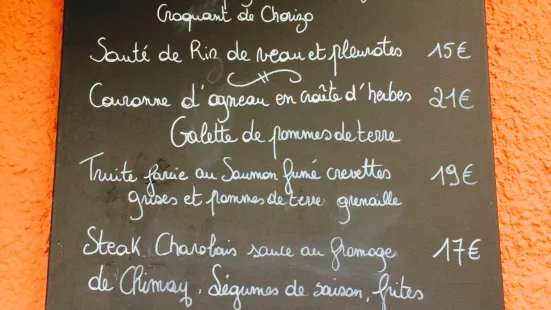 Croquant de Chorizo
Sauté de Riz de veau et pleurotes 15€
Couronne d'agneau en croûte d'herbes 21€
Galette de pommes de terre
Truite farcie au Saumon fumé crevettes 19€
grises et pommes de terre grenaille
Steak Charolais sauce au fromage 17€
de Chimay. Légumes de saison, frites